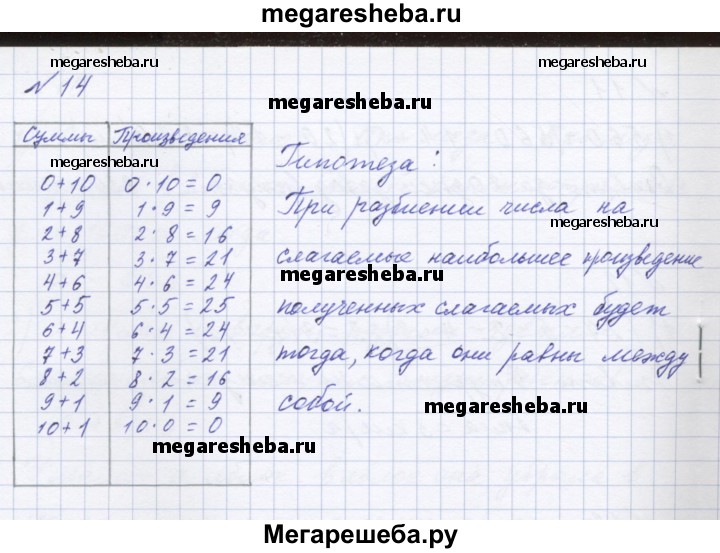 megaresheba.ru
megaresheba.ru
megaresheba.ru
№ 14
megaresheba.ru
Суммы Произведения
megaresheba.ru
Гипотеза:
0+10 0·10=0
1+9 1·9=9
При разбиении числа на
megaresheba.ru
2+8 2·8=16
3+7 3·7=21
слагаемые наибольшее произведение
megaresheba.ru
4+6 4·6=24
5+5 5·5=25
полученных слагаемых будет
6+4 6·4=24
7+3 7·3=21
тогда, когда они равны между
8+2 8·2=16
9+1 9·1=9
собой.
megaresheba.ru
10+1 10·0=0
megaresheba.ru
Мегарешеба.ру